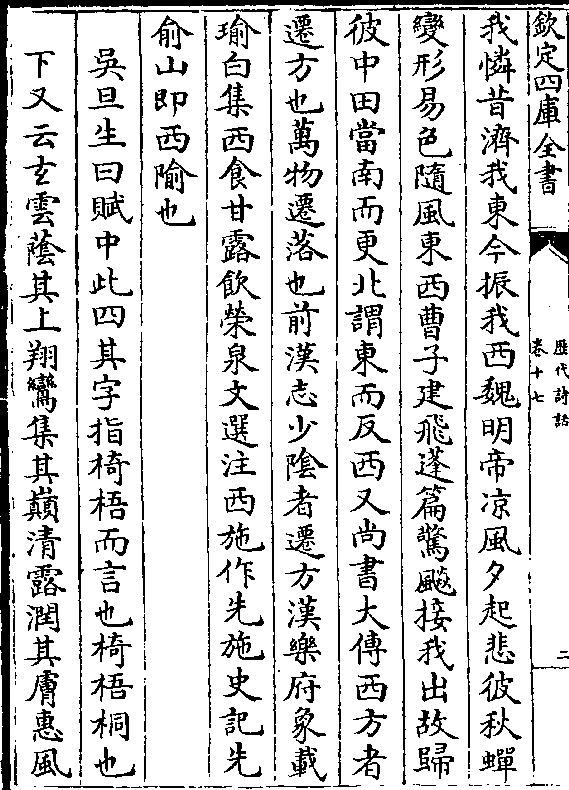 欽定四庫全書
歷代詩話
卷十七
二
我憐昔濟我東今振我西魏明帝凉風夕起悲彼秋蟬
變形易色隨風東西曹子建飛蓬篇驚飈接我出故歸
彼中田當南而更北謂東而反西又尚書大傳西方者
遷方也萬物遷落也前漢志少陰者遷方漢樂府象載
瑜白集西食甘露飲榮泉文選注西施作先施史記先
俞山即西隃也
吳旦生曰賦中此四其字指椅梧而言也椅梧桐也
下又云玄雲蔭其上翔鸞集其巔清露潤其膚惠風